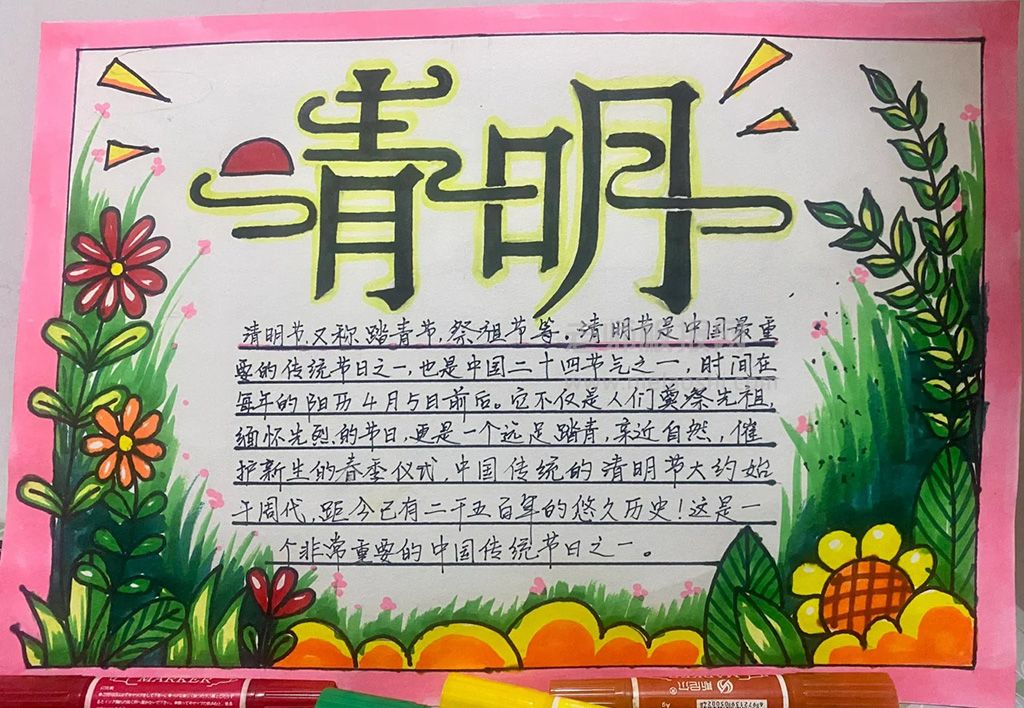 清明
清明节,又称踏青节,祭祖节等,清明节是中国最重
要的传统节日之一,也是中国二十四节气之一,时间在
每年的阳历4月5日前后。它不仅是人们奠祭先祖,
缅怀先烈的节日,更是一个远足踏青,亲近自然,催
护新生的春季仪式,中国传统的清明节大约始
于周代,距今已有二千五百年的悠久历史!这是一
个非常重要的中国传统节日之一。
MARKER
斯尼尔